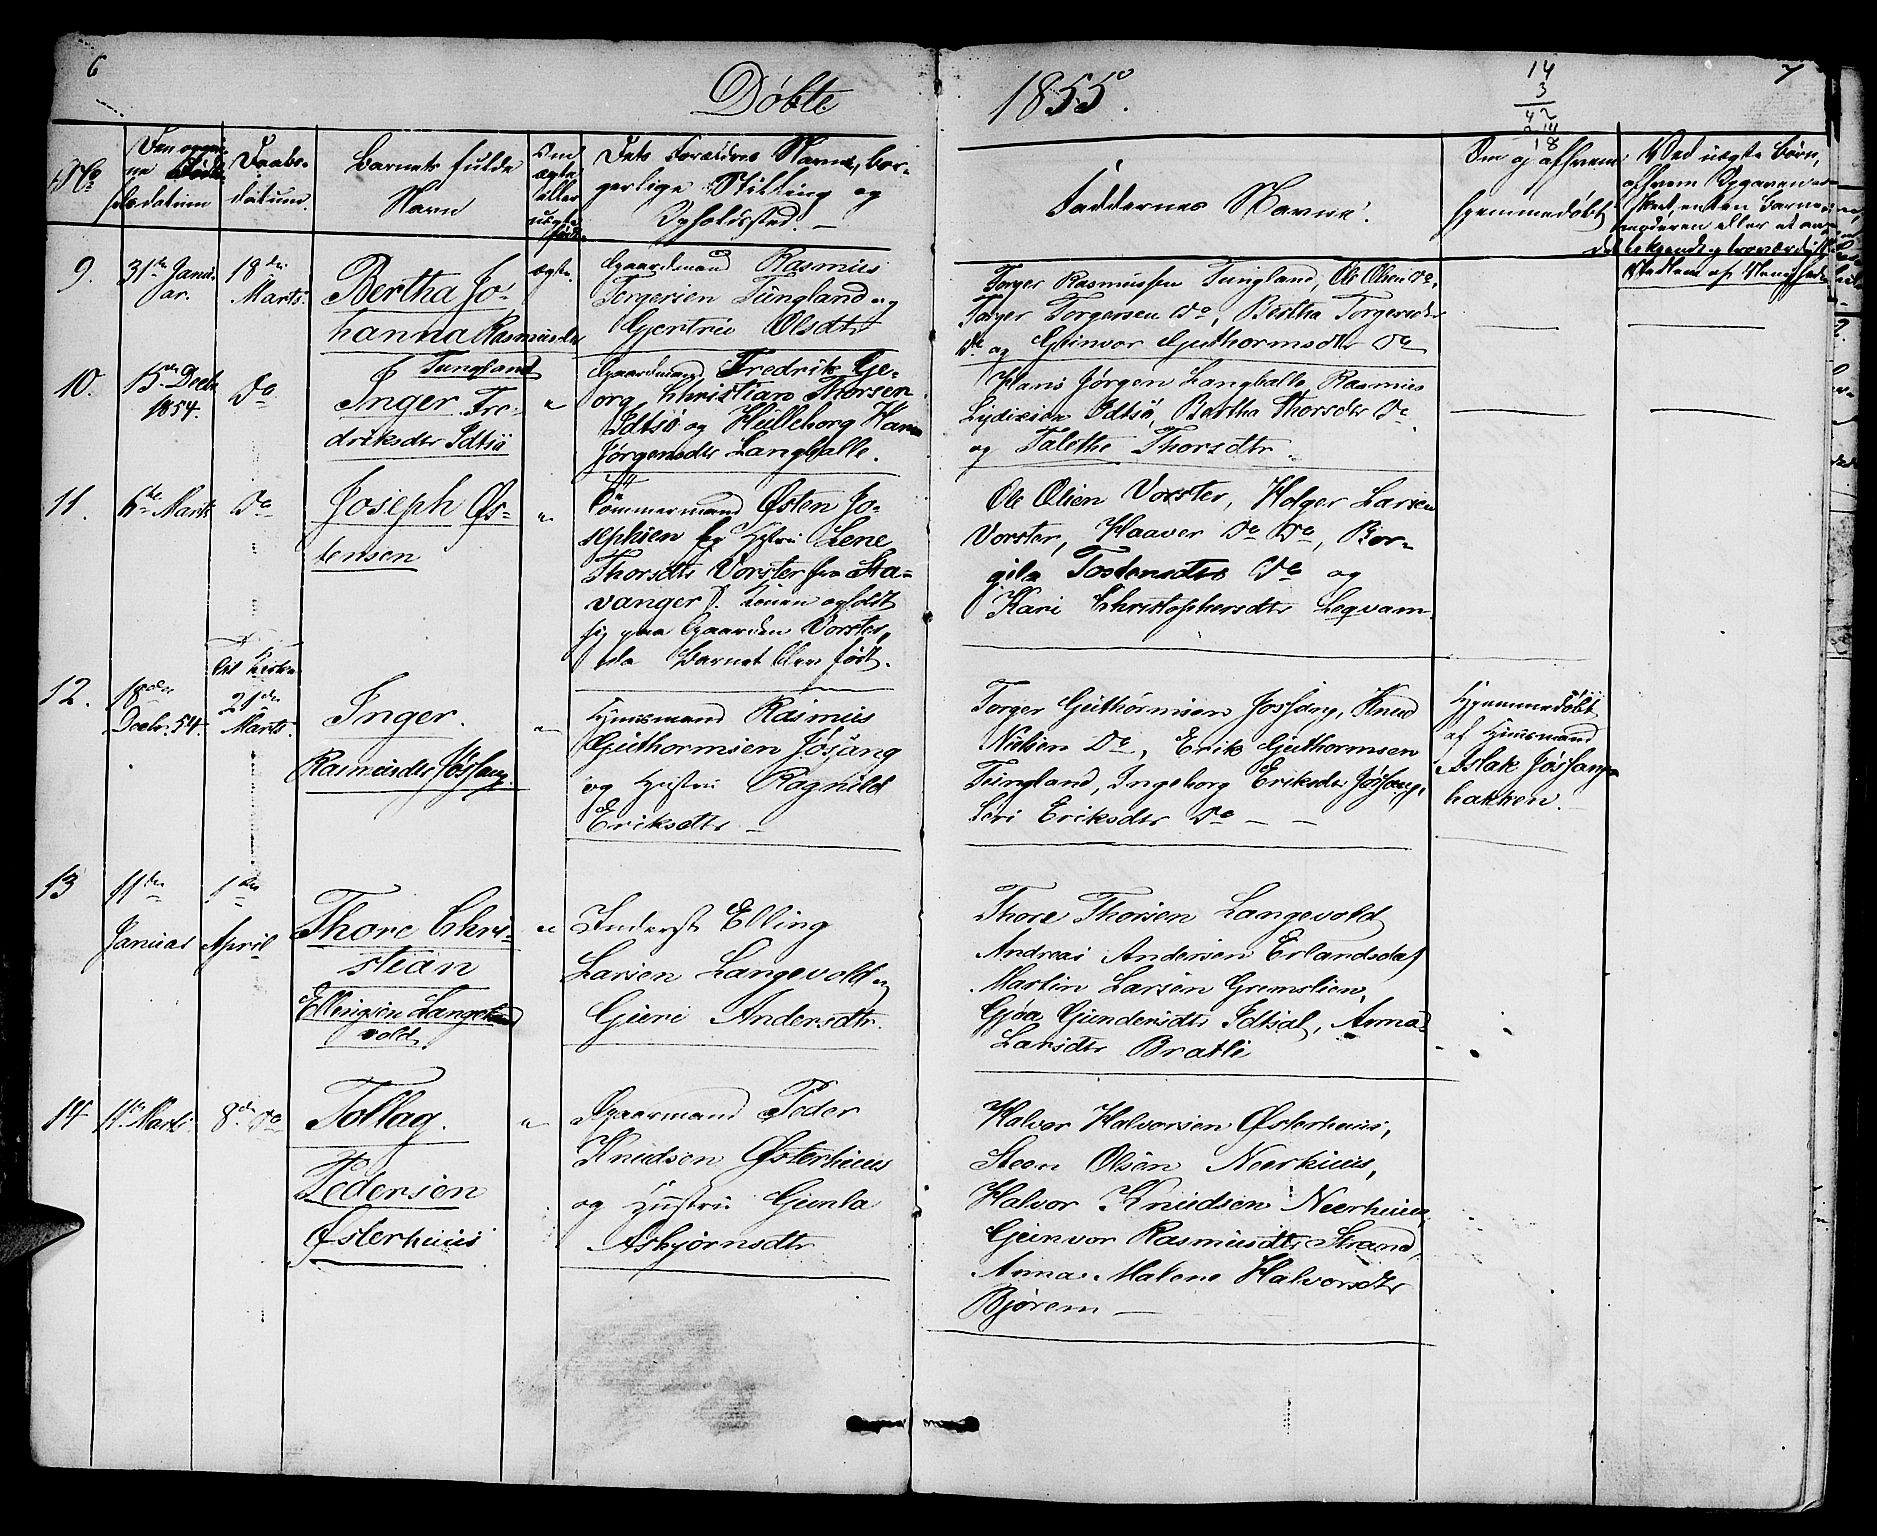 6
Døbte
1855.
14
3
42
14
18
7
No
Den opgivne Fødselsdatum
Daabsdatum.
Barnets fulde Navn
Om ægte eller uægte født.
Dets Forældres Navne, borgerlige Stilling og Opholdssted. –
Faddernes Navne.
Om og af hvem hjemmedøbt
Ved uægte Børn, af hvem Opgaven er skeet, enten Barnemoderen eller et andet bekjendt, troværdigt Medlem af Menigheden
9.
31te Januar.
18de Marts.
Bertha Jo-
hanna Rasmusdtr
Tungland
ægte.
Gaardmand Rasmus
Torgersen Tungland og
Gjertrue Olsdtr
Torger Rasmussen Tungland, Ole Olsen do,
Torger Torgersen do, Bertha Torgersdtr
do og Guinvor Guthormsdtr do
10.
15de Decbr 1854.
do
Inger Fre-
driksdtr Idtsö
"
Gaardmand Fredrik Ge-
org Christian Thorsen
Idtsö og Hulleborg Hans
Jørgensdtr Langballe.
Hans Jørgen Langballe, Rasmus
Idtsö, Bertha Thorsdtr do
og Talethe Thorsdtr.
11.
6te Marts
do
Joseph Øs-
tensen
"
Tömmermand Østen Jo-
sephsen og Hstru Lene
Thorsdtr Vorster fra Sta-
vanger. Konen opholdt
sig paa Gaarden Vorster,
da Barnet blev født.
Ole Olsen Vorster, Holger Larsen
Vorster, Haaver do do, Bor-
gila Tostensdtr do og
Kari Christophersdtr Leqvam.
12.
18de Decbr. 54.
til Kirken
21de Marts.
Inger.
Rasmusdtr Jøssang.
"
Huusmand Rasmus
Guthormsen Jösang
og Hustru Ragnild
Eriksdtr –
Torger Guthormsen Jossang, Knud
Nilsen do, Erik Guthormsen
Tungland, Ingeborg Eriksdtr Jøssang,
Seri Eriksdtr do – –
Hjemmedøbt
af Huusmand
Aslak Jøssang-
bakken.
13
11de Januar
1de April
Thore Chri-
stian
Ellingsen Lange-
vold
"
Inderst Elling
Larsen Langevold og
Guri Andersdtr.
Thore Thorsen Langevold
Andreas Andersen Erlandsdal
Martin Larsen Gremslien,
Gjøa Gundersdtr Idtsal, Anna
Larsdtr Bratli
14
11te Marts.
8de do
Tollag.
Pedersen
Østerhuus
"
Gaarmand Peder
Knudsen Østerhuus
og Hustru Gunla
Asbjørnsdtr
Halvor Halvorsen Østerhuus,
Steen Olsen Neerhuus,
Halvor Knudsen Neerhuus,
Guinvor Rasmusdtr Strand,
Anna Malene Halvorsdtr
Bjørem –